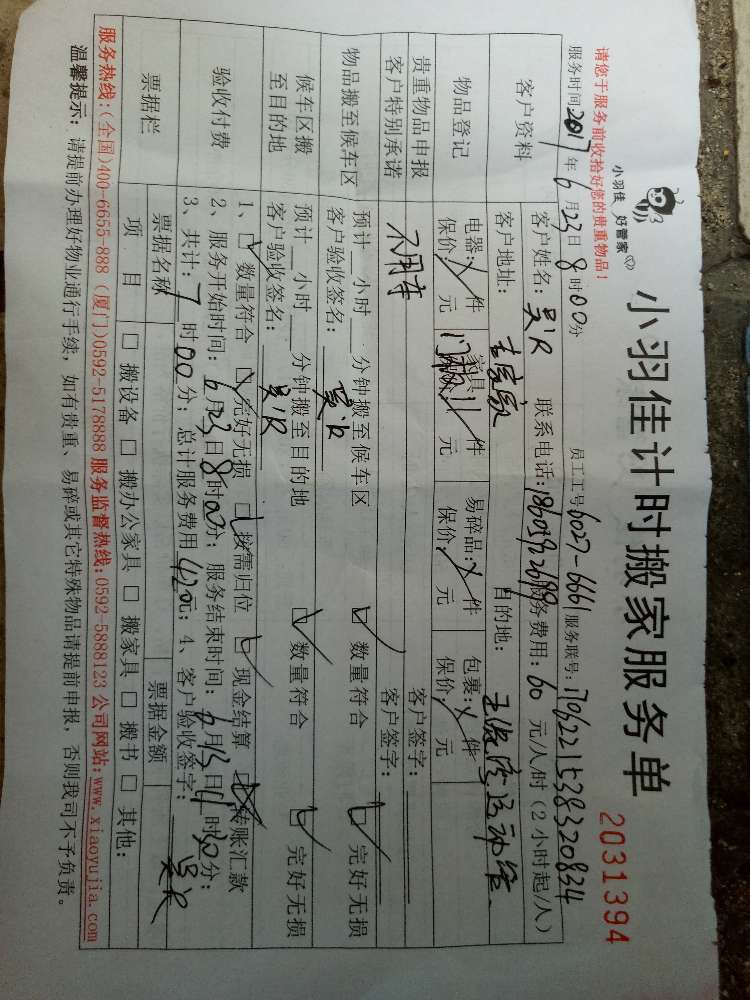 小羽佳 好管家
小羽佳计时搬家服务单
2031394
请您于服务前收拾好您的贵重物品！
服务时间 2017 年 6 月 23 日 8 时 00 分 员工工号 6027-6661 服务联号:
客户资料
客户姓名: 吴 联系电话: 服务费用: 60 元/人/时 (2小时起/人)
客户地址: 目的地:
物品登记
电器: 件 家具 件 易碎品: 件 包裹: 件
保价 元 元 保价 元 保价 元
贵重物品申报 客户签字:
客户特别承诺 客户签字:
物品搬至候车区
预计__小时__分钟搬至候车区 □数量符合 □完好无损
客户验收签名:
候车区搬至目的地
预计__小时__分钟搬至目的地 □数量符合 □完好无损
客户验收签名:
验收付费
1、□数量符合 □完好无损 □按需归位 □现金结算 □转账汇款
2、服务开始时间: 6月23日8时00分; 服务结束时间: 月 日 时30分;
3、共计: 7 时 00 分; 总计服务费用 420 元; 4、客户验收签字:
票据栏 票据名称 票据金额
项目 □搬设备 □搬办公家具 □搬家具 □搬书 □其他:
服务热线: (全国)400-6655-888 (厦门)0592-5178888 服务监督热线: 0592-5888123 公司网站: www.xiaoyujia.com
温馨提示: 请提前办理好物业通行手续, 如有贵重、易碎或其它特殊物品请提前申报, 否则我司不予负责。